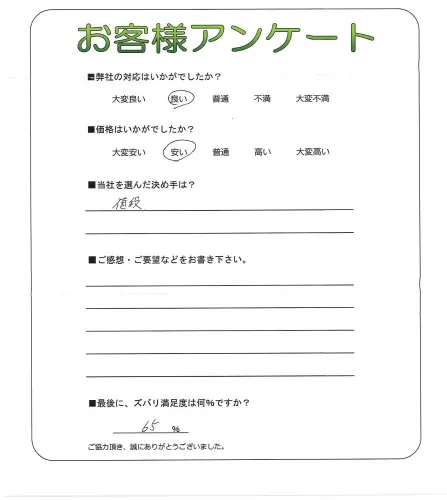 お客様アンケート
■弊社の対応はいかがでしたか？
大変良い 良い 普通 不満 大変不満
■価格はいかがでしたか？
大変安い 安い 普通 高い 大変高い
■当社を選んだ決め手は？
値段
■ご感想・ご要望などをお書き下さい。
■最後に、ズバリ満足度は何%ですか？
65 %
ご協力頂き、誠にありがとうございました。